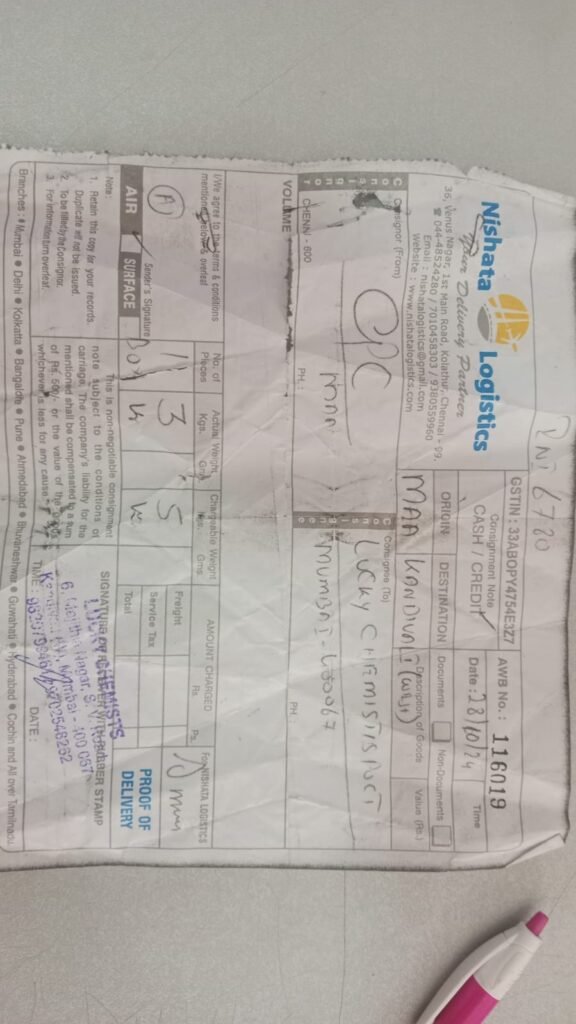 PNT 6780
Nishata Logistics
Your Delivery Partner
36, Venus Nagar, 1st Main Road, Kolathur, Chennai - 99.
☎ 044-48524280 / 7010458303 / 9380559960
Email : nishatalogistics@gmail.com
Website : www.nishatalogistics.com
GSTIN : 33ABOPY4754E3Z7
Consignment Note
CASH / CREDIT
AWB No. : 116019
Date : 28/10/24
Time
ORIGIN
DESTINATION
Documents
Non-Documents
MAA
KANDIVALI (W)
Description of Goods
Value (Rs.)
Consignor
Consignor (From)
CPC
MAA
CHENNI - 600
PH. :
Consignee
Consignee (To)
LUCKY CHEMISTS
MUMBAI - 400067
PH.
VOLUME
I/We agree to the terms & conditions
mentioned below & overleaf
Sender's Signature
AIR
SURFACE
No. of Pieces
Actual Weight
Kgs. Gms
Chargeable Weight
Kgs. Gms
Box
3
5
AMOUNT CHARGED
Rs. Ps.
Freight
Service Tax
Total
For NISHATA LOGISTICS
PROOF OF
DELIVERY
Note :
1. Retain this copy for your records.
Duplicate will not be issued.
2. To be filled by the Consignor.
3. For information turn overleaf.
This is non-negotiable consignment
note subject to the conditions of
carriage. The company's liability for the
mentioned shall be compensated to a sum
of Rs. 500/- or the value of the goods
whichever is less for any cause.
SIGNATURE OF RECEIVER WITH RUBBER STAMP
LUCKY CHEMISTS
Mumbai - 400 067
TIME :
DATE :
Branches : Mumbai ● Delhi ● Kolkatta ● Bangalore ● Pune ● Ahmedabad ● Bhuvaneshwar ● Guwahati ● Hyderabad ● Cochin and All over Tamilnadu